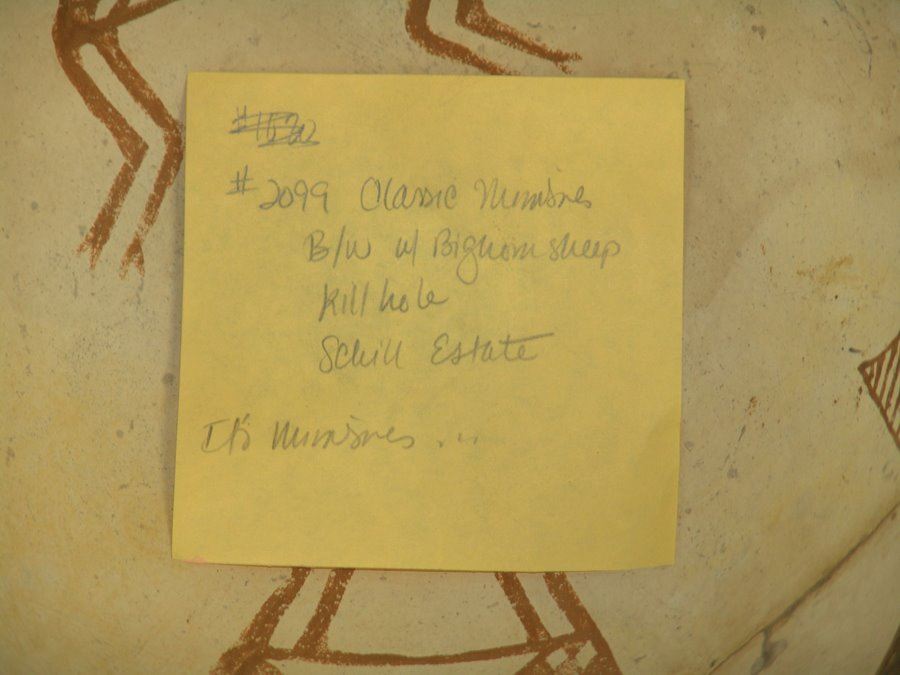 #1622
#2099 Classic Mimbres
B/W w/ Bighorn sheep
Kill hole
Schill Estate
It's Mimbres ...